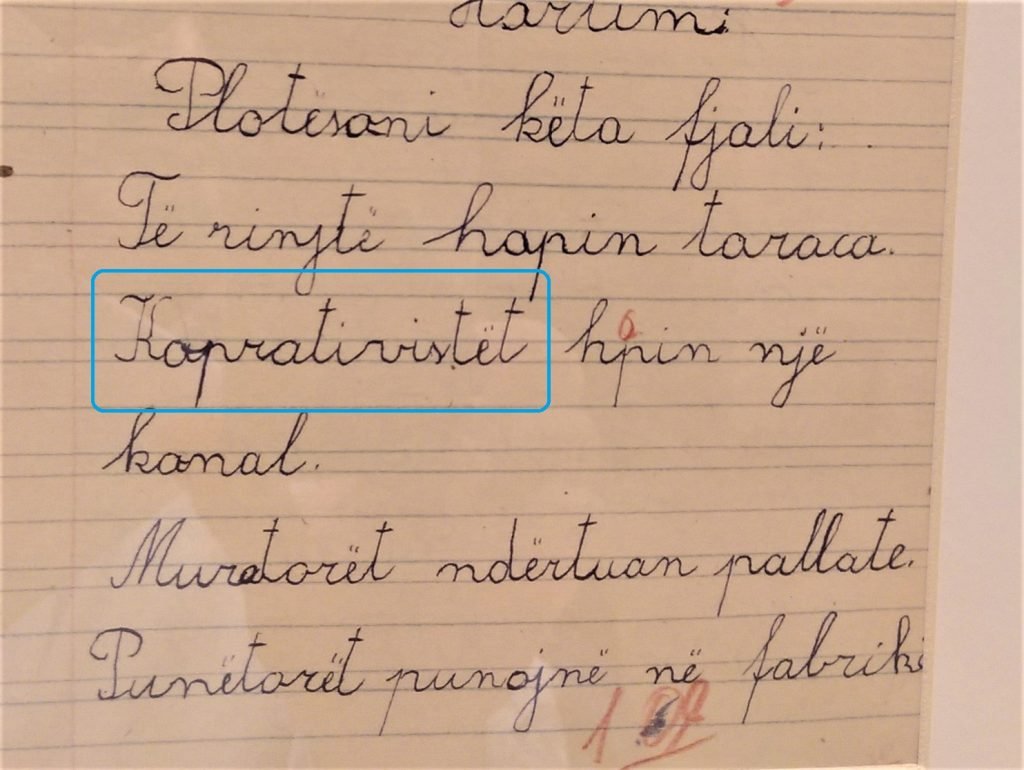 Plotësani këta fjali:
Të rinjtë hapin taraca.
Koprativistët hpin një
kanal.
Muratorët ndërtuan pallate.
Punëtorët punojnë në fabrikë